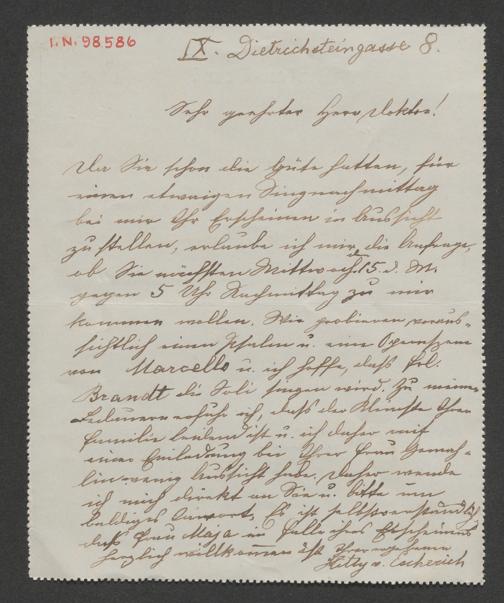 I.N. 98586
IX. Dietrichsteingasse 8.
Sehr geehrter Herr Doktor!
Da Sie schon die Güte hatten, für
einen etwaigen Singnachmittag
bei mir Ihr Erscheinen in Aussicht
zu stellen, erlaube ich mir die Anfrage,
ob Sie nächsten Mittwoch 15. d. M.
gegen 5 Uhr Nachmittag zu mir
kommen wollen. Wir probieren voraus-
sichtlich einen Psalm u. eine Opernszene
von Marcello u. ich hoffe, dass Frl.
Brandt die Soli singen wird. Zu meinem
Bedauern erfuhr ich, dass der Kleinste Ihrer
Familie leidend ist u. ich daher mit
einer Einladung bei Ihrer Frau Gemah-
lin wenig Aussicht habe. Daher wende
ich mich direkt an Sie u. bitte um
baldiges Antwort. Es ist selbstverständlich
dass Frau Maja im Falle ihres Erscheinens
herzlich willkommen ist Ihrer ergebenen
Hitty v. Escherich